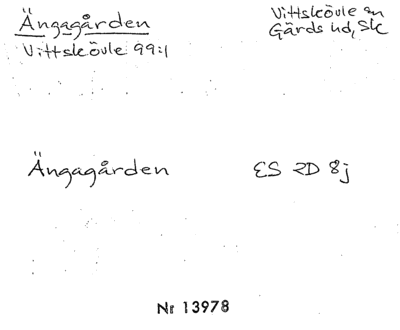 Ängagården
Vittskövle 99:1
Vittskövle sn
Gärds hd, Sk
Ängagården
ES 2D 8j
Nr 13978